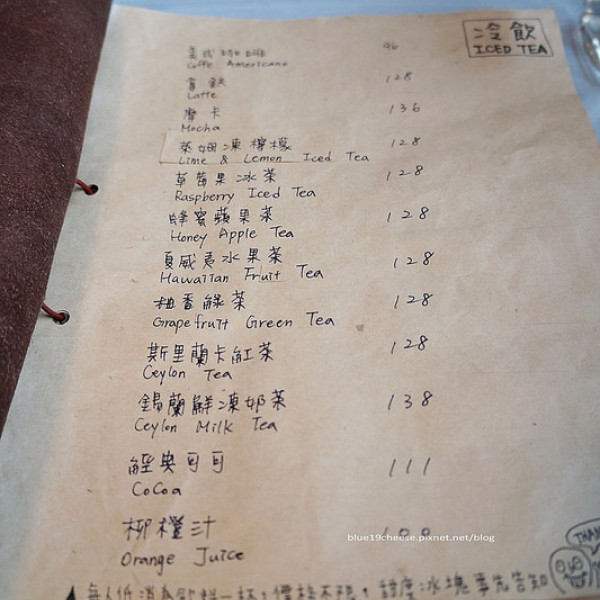 冷飲
ICED TEA
美式咖啡 96
Caffe Americano
拿鐵 128
Latte
摩卡 136
Mocha
萊姆凍檸檬 128
Lime & Lemon Iced Tea
草莓果冰茶 128
Raspberry Iced Tea
蜂蜜蘋果茶 128
Honey Apple Tea
夏威夷水果茶 128
Hawaiian Fruit Tea
柚香綠茶 128
Grapefruit Green Tea
斯里蘭卡紅茶 128
Ceylon Tea
錫蘭鮮凍奶茶 138
Ceylon Milk Tea
經典可可 111
CoCoa
柳橙汁
Orange Juice
blue19cheese.pixnet.net/blog
每人低消為飲料一杯，價格不限，甜度冰塊事先告知